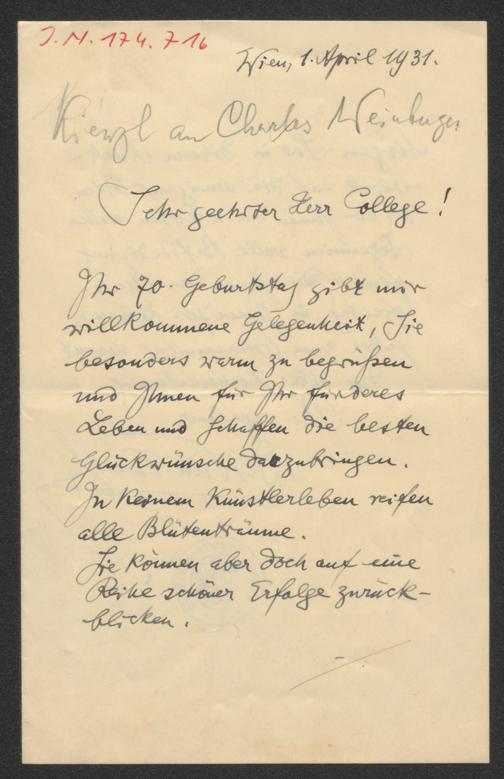 J.N. 174.716
Wien, 1. April 1931.
Kienzl an Charles Weinberger
Sehr geehrter Herr College!
Ihr 70. Geburtstag gibt mir
willkommene Gelegenheit, Sie
besonders warm zu begrüßen
und Ihnen für Ihr ferneres
Leben und Schaffen die besten
Glückwünsche darzubringen.
In keinem Künstlerleben reifen
alle Blütenträume.
Sie können aber doch auf eine
Reihe schöner Erfolge zurück-
blicken.